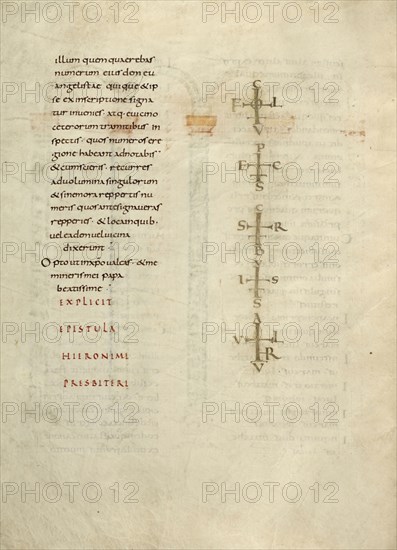 illum quem quaerebas
numerum eius don eu
angelistae qui que & ip
se ex inscriptione signa
tur inuenies atq; e uicino
ceterorum tramitibus in
spectis quos numeros ere
gione habeant adnotabis
& cum scieris recurres
ad uolumina singulorum
& sine mora repertis nu
meris quos ante signaueras
repperies & loca in quib;
uel eadem uel uicina
dixerunt
Opto ut in xpo ualeas & me
mineris mei papa
beatissime
EXPLICIT
EPISTULA
HIERONIMI
PRESBITERI
C
E L
V
P
F C
S
C
S R
B
V
I S
S
A
V L
R
V